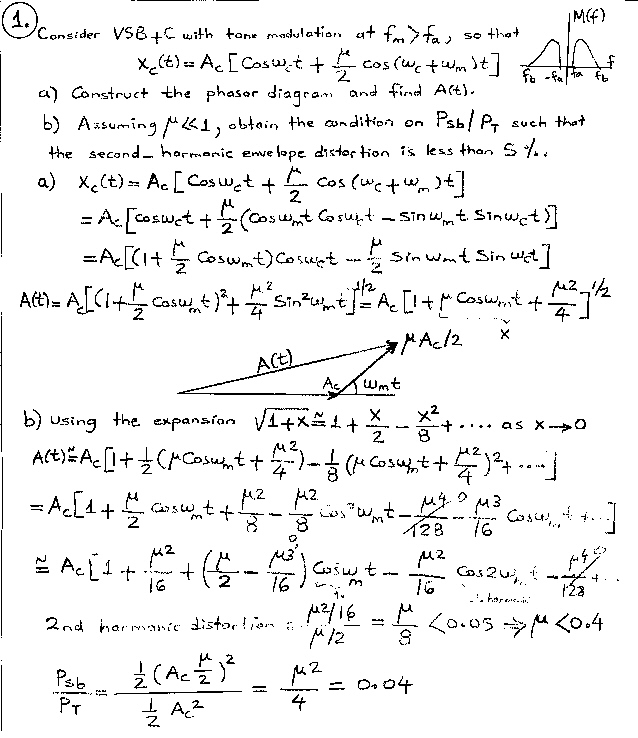 1. Consider VSB+C with tone modulation at fm > fa, so that
M(f)
xc(t) = Ac [Cosωct + μ/2 cos(ωc+ωm)t]
fb -fa fa fb f
a) Construct the phasor diagram and find A(t).
b) Assuming μ<<1, obtain the condition on Psb/PT such that
the second-harmonic envelope distortion is less than 5%.
a) xc(t) = Ac [Cosωct + μ/2 cos(ωc+ωm)t]
= Ac [cosωct + μ/2 (cosωmt Cosωct - Sinωmt Sinωct)]
= Ac [(1+ μ/2 Cosωmt) Cosωct - μ/2 Sinωmt Sinωct]
A(t) = Ac [(1+ μ/2 Cosωmt)² + μ²/4 Sin²ωmt]^1/2 = Ac [1 + μ Cosωmt + μ²/4]^1/2
x
μAc/2
A(t)
Ac ωmt
b) Using the expansion √1+x ≅ 1 + x/2 - x²/8 + .... as x→0
A(t) ≅ Ac [1 + 1/2 (μ Cosωmt + μ²/4) - 1/8 (μ Cosωmt + μ²/4)² + ....]
= Ac [1 + μ/2 Cosωmt + μ²/8 - μ²/8 Cos²ωmt - μ⁴/128 0 - μ³/16 Cosωmt + ...]
≅ Ac [1 + μ²/16 + (μ/2 - μ³/16 0) Cosωmt - μ²/16 Cos2ωmt - μ⁴/128 0 + ...
2nd harmonic distortion = μ²/16 / μ/2 = μ/8 < 0.05 ⇒ μ < 0.4
Psb/PT = 1/2 (Ac μ/2)² / 1/2 Ac² = μ²/4 = 0.04